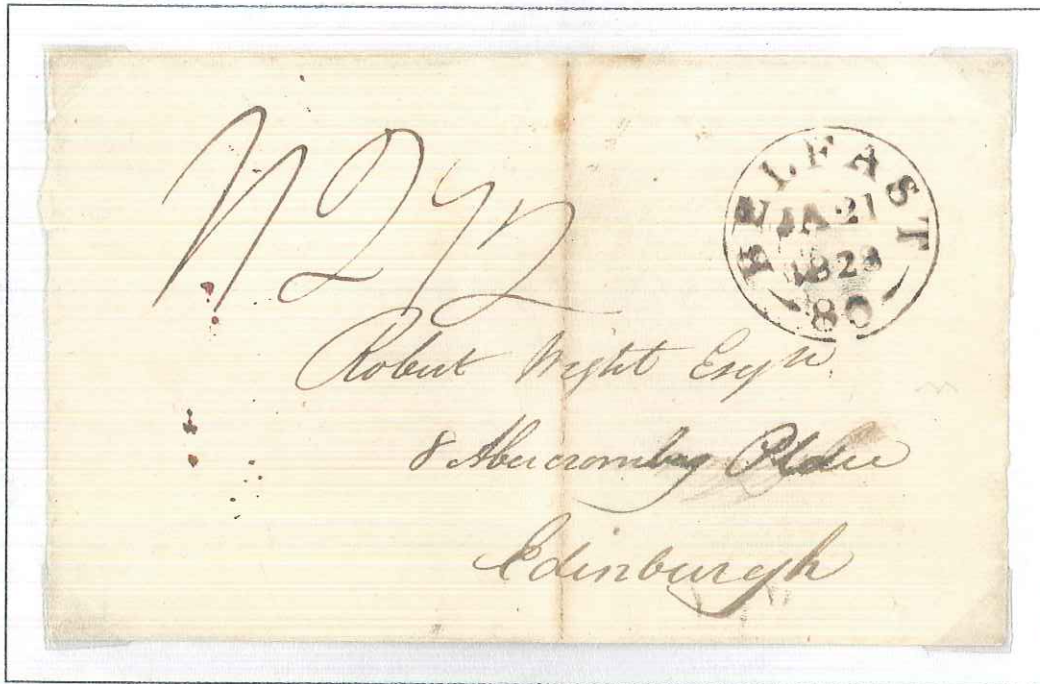 BELFAST
JA 21
1828
80
Robert Wight Esqre
8 Abercromby Place
Edinburgh